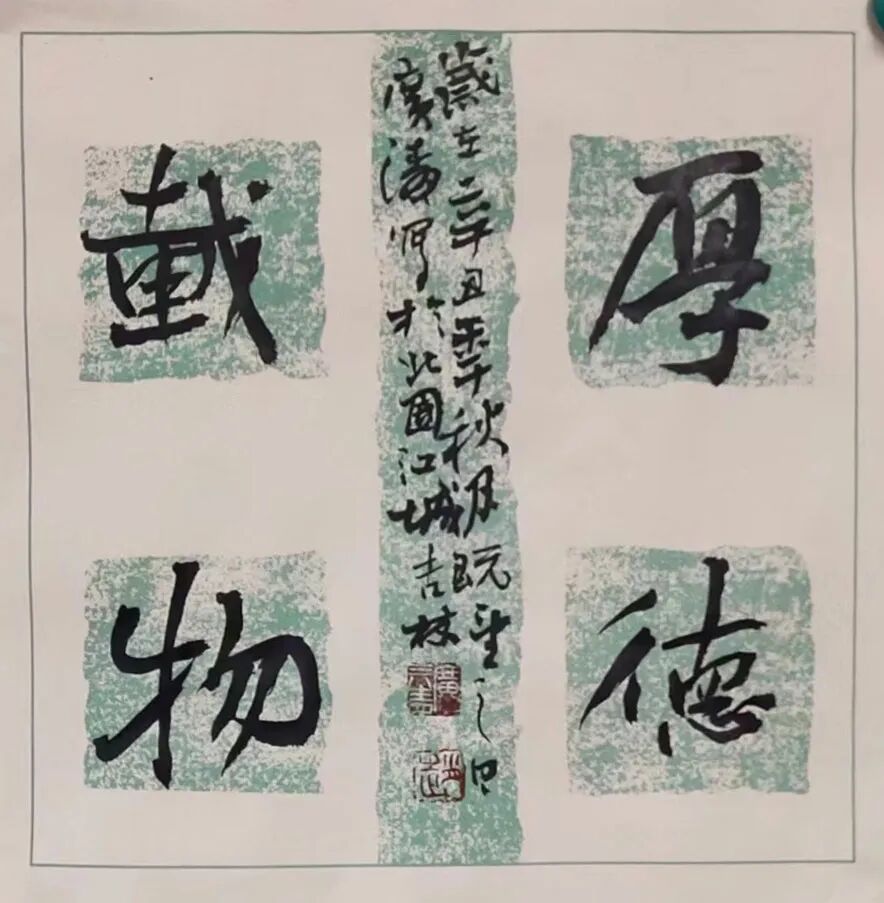 厚德
歲在辛丑年秋月既望之日
廣濤寫於北國江城吉林
載物